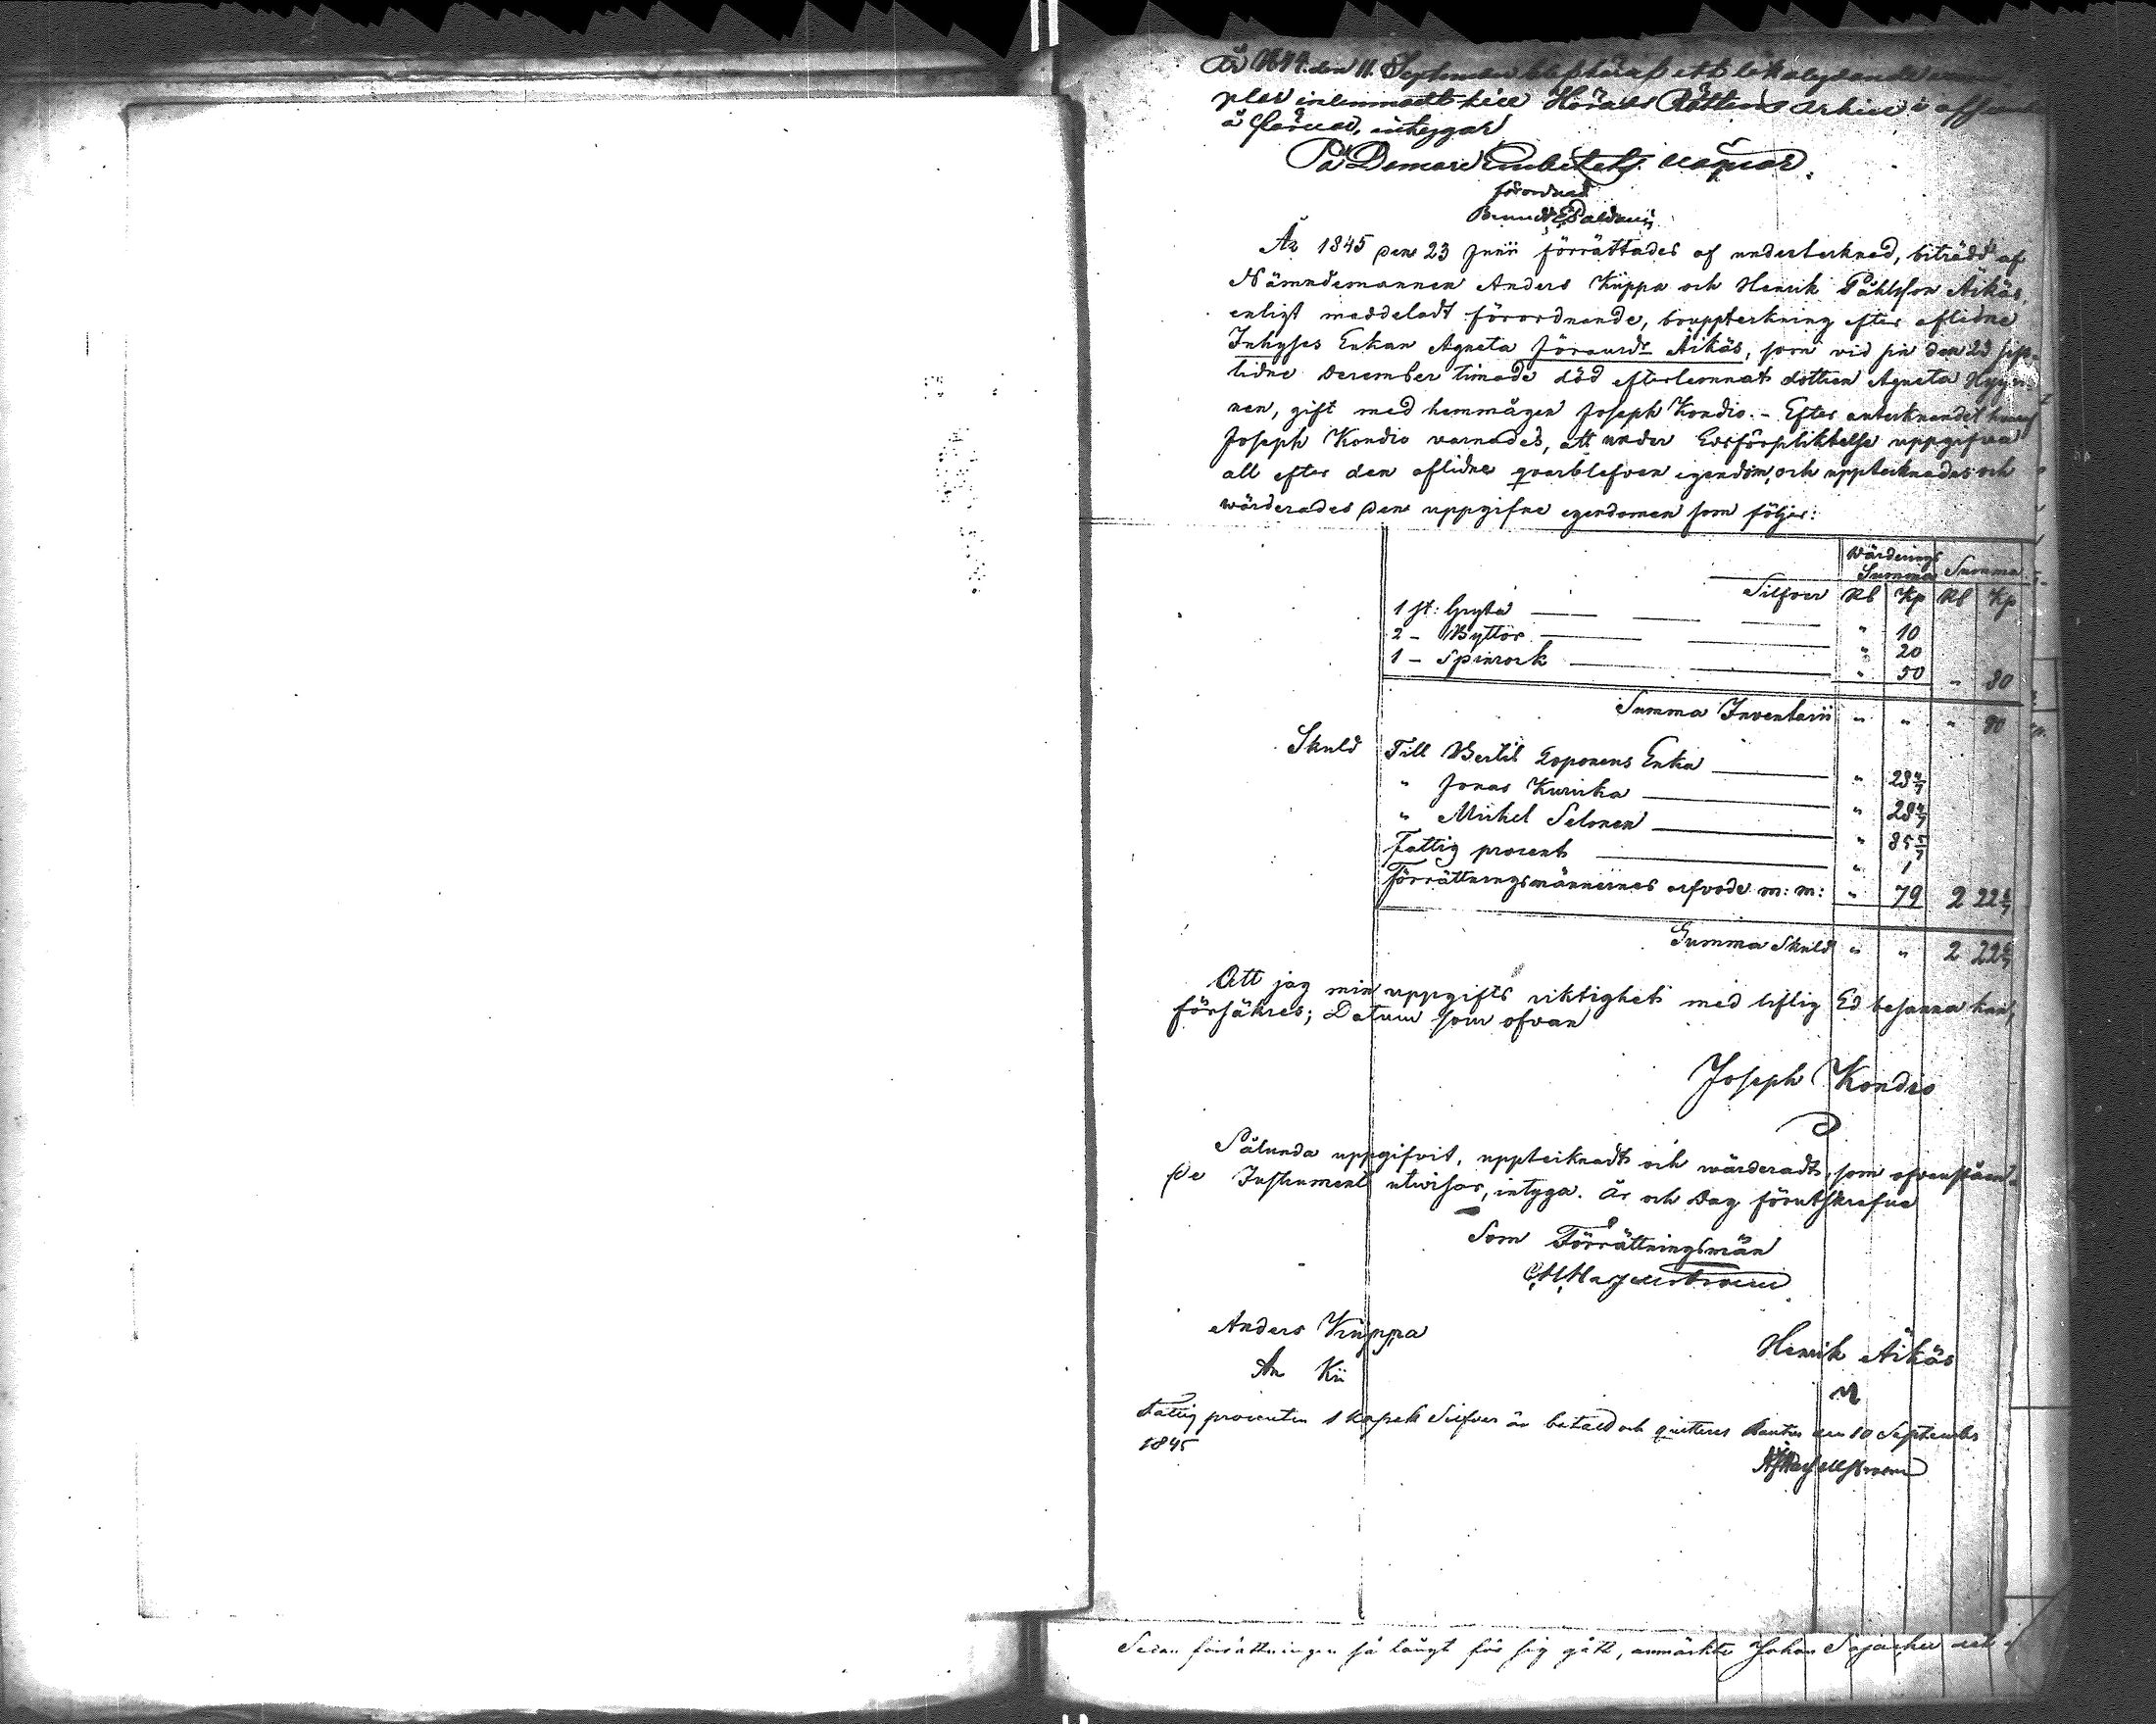 den 11 September
plar inlemnadt till Härads Rättens Arkiv i
intygar
På Domare Embetets vägnar.
förordnad
År 1845 den 23 Junii förrättades af undertecknad, biträdd af
Nämndemannen Anders Kiippa och Henrik Påhlsson Äikäs,
enligt meddeladt förordnande, bouppteckning efter aflidne
Inhyses Enkan Agneta Äikäs, som vid sin den 23 sist-
lidne December timade död efterlemnat dottren Agneta Hyyn-
nen, gift med hemmågen Joseph Kondio. – Efter antecknandet häraf
Joseph Kondio varnades, att under Edsförpliktelse uppgifva
all efter den aflidne qvarblefven egendom, och upptecknades och
wärderades den uppgifne egendomen som följer:
Wärderings Summa Summa
Silfver Rb Kp Rb Kp
1 st: Gryta " 10
2 – Byttor " 20
1 – Spinrock " 50 " 80
Summa Inventarii " " " 80
Skuld Till Bertil Enka " 28 4/7
" Jonas Kuricka " 28 4/7
" Mickel Selonen " 85 5/7
Fattig procent " 1
Förrättningsmännernes arfvode m: m: " 79 2 22 6/7
Summa Skuld " " 2 22 6/7
Att jag min uppgifts riktighet med liflig Ed besanna kan,
försäkres; Datum som ofvan
Joseph Kondio
Sålunda uppgifvit, upptecknadt och wärderadt, som ofvanståen-
de Instrument utvisar, intyga. År och Dag förutskrefne
Som Förrättningsmän
Anders Kiippa
An Kii
Henrik Äikäs
Fattig procenten 1 kopek Silfver är betald och quitteras den 10 September
1845
Sedan förrättningen så långt för sig gått, anmärkte Johan